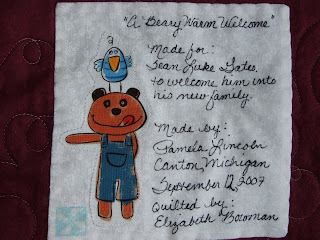 "A Beary Warm Welcome"
Made for:
Sean Luke Gates,
to welcome him into
his new family.
Made by:
Pamela Lincoln
Canton, Michigan
September 12, 2007
Quilted by:
Elizabeth Bowman